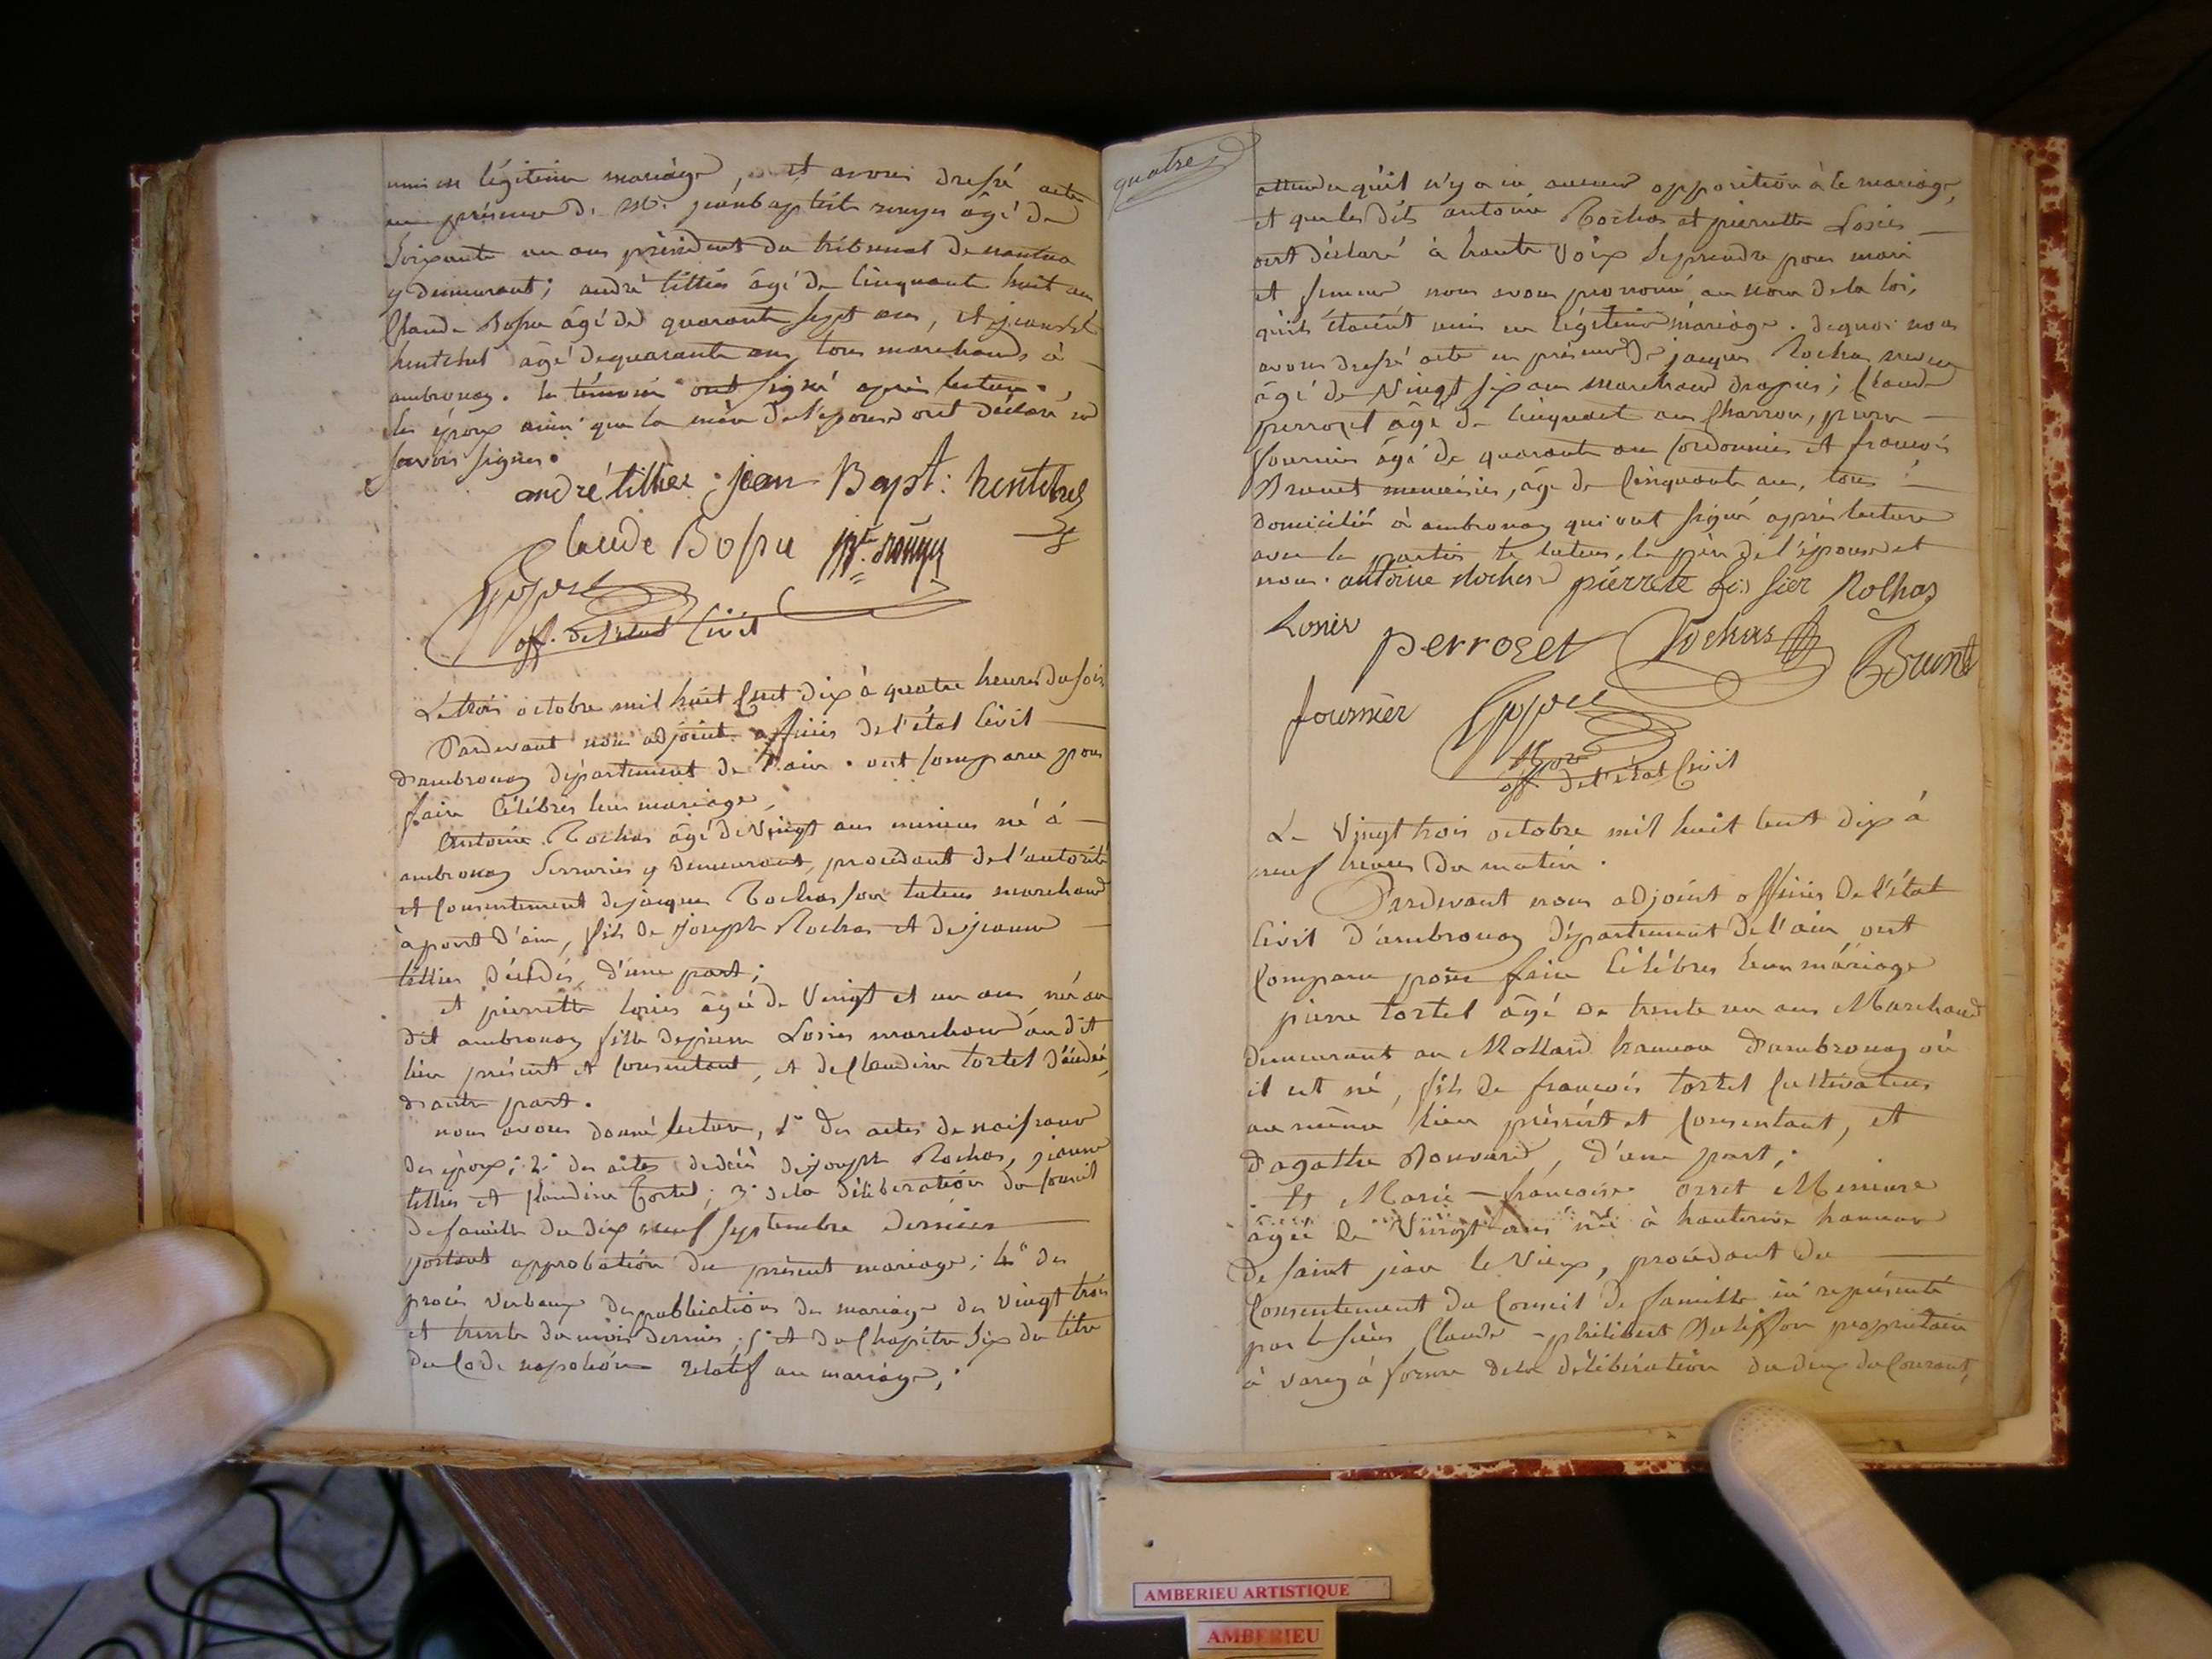 unis en légitime mariage, et avons dressé acte
en présence de Mr. jean baptiste rouyer âgé de
Soixante un ans président du tribunal de nantua
y demeurant; andré tillier âgé de cinquante huit ans
Claude Bossu âgé de quarante sept ans, et jean bte
hentchel âgé de quarante ans, tous marchands à
ambronay. les témoins ont signé après lecture.
les époux ainsi que la mère de l'épouse ont déclaré ne
savoir signer.
andré tillier jean Bapt: hentchel
Claude Bossu
off. de l'état Civil
Le trois octobre mil huit Cent dix à quatre heures du soir
Pardevant nous adjoint officier de l'état Civil
d'ambronay département de l'ain. ont Comparu pour
faire Célébrer leur mariage,
Antoine Rochas âgé de vingt ans mineur né à
ambronay Serrurier y demeurant, procédant de l'autorité
et Consentement de jacques Rochas son tuteur marchand
à pont d'ain, fils de joseph Rochas et de jeanne
tillier décédés, d'une part;
et pierrette losier âgée de Vingt et un ans née au
dit ambronay fille de pierre Losier marchand au dit
lieu présent et Consentant, et de Claudine tortel décédée,
d'autre part.
nous avons donné lecture, 1° des actes de naissance
des époux; 2° des actes de décès de joseph Rochas, jeanne
tillier et Claudine Tortel; 3° de la délibération du Conseil
de famille du dix neuf septembre dernier
portant approbation du présent mariage; 4° des
procès verbaux des publications du mariage des Vingt trois
et trente du mois dernier; 5° et du Chapitre Six du titre
du Code napoléon relatif au mariage,
quatre
attendu qu'il n'y a eu aucune opposition à ce mariage,
et que les dits antoine Rochas et pierrette Losier
ont déclaré à haute Voix Se prendre pour mari
et femme nous avons prononcé au nom de la loi,
qu'ils étaient unis en légitime mariage. de quoi nous
avons dressé acte en présence de jacques Rochas neveu
âgé de Vingt six ans marchand drapier; Claude
perrozet âgé de Cinquante ans Charron, pierre
fournier âgé de quarante ans Cordonnier et françois
Brunet menuisier, âgé de Cinquante ans, tous
domiciliés à ambronay qui ont signé après lecture
avec les parties le tuteur, le père de l'épouse et
nous. antoine Rochas pierrete Losier Rochas
Losier perrozet Rochas Brunet
fournier
off de l'état Civil
Le Vingt trois octobre mil huit Cent dix à
neuf heures du matin.
Pardevant nous adjoint officier de l'état
Civil d'ambronay département de l'ain ont
Comparu pour faire Célébrer leur mariage
pierre tortel âgé de trente un ans Marchand
demeurant au Mollard hameau d'ambronay où
il est né, fils de françois tortel Cultivateur
au même lieu présent et Consentant, et
d'agathe Bouvard, d'une part;
Et Marie-françoise orset Mineure
âgée de Vingt ans née à hauterive hameau
de saint jean le Vieux, procédant du
Consentement du Conseil de famille ici représenté
par le sieur Claude-philibert propriétaire
à varey à forme de la délibération du deux du Courant,
AMBERIEU ARTISTIQUE
AMBERIEU